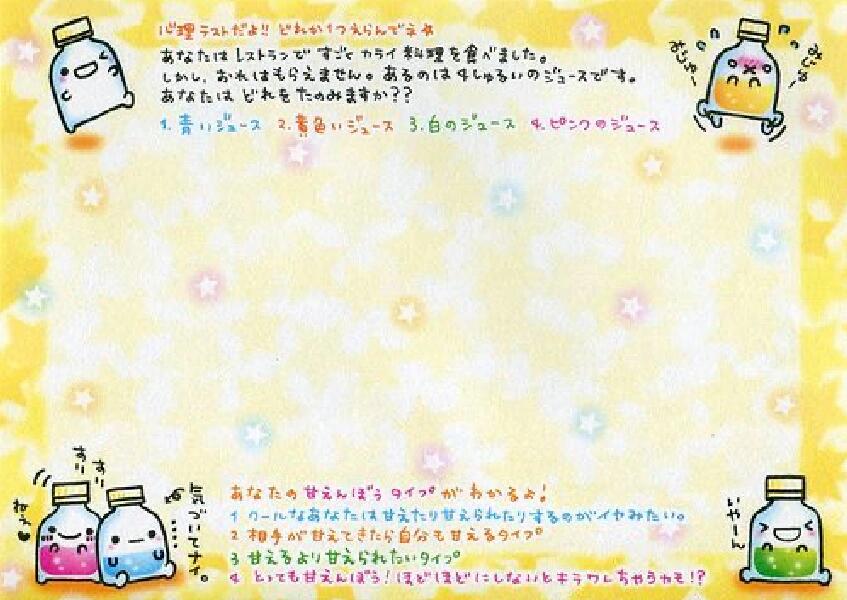 心理テストだよ!! どれか1つえらんでネ☆
あなたはレストランで すごく カライ料理を食べました。
しかし、おれはもらえません。あるのは4しゅるいのジュースです。
あなたは どれを たのみますか??
1. 青いジュース 2. 黄色いジュース 3. 白のジュース 4. ピンクのジュース
みじゅ〜
みじゅ〜
すり
すり
ねぇ♥
気づいてナイ。
いや〜ん
あなたの 甘えんぼう タイプ がわかるよ!
1 クールなあなたは甘えたり甘えられたりするのがイヤみたい。
2 相手が甘えてきたら自分も甘えるタイプ
3 甘えるより甘えられたいタイプ
4 とっても甘えんぼう!ほどほどにしないとキラワレちゃうかも!?